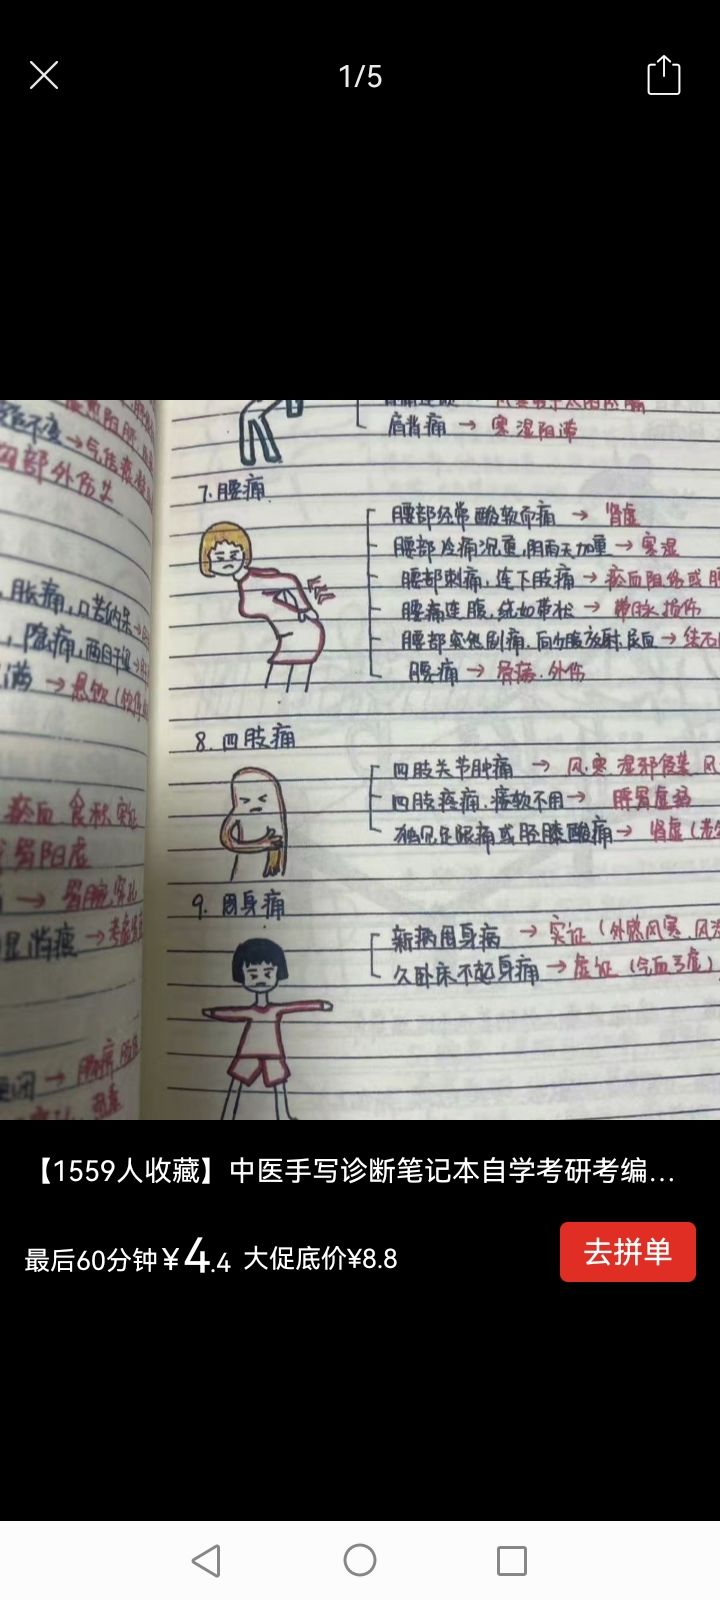 1/5
肩背痛 → 寒湿阻滞
7.腰痛
腰部经常酸软而痛 → 肾虚
腰部冷痛沉重,阴雨天加重 → 寒湿
腰部刺痛,连下肢痛 → 瘀血阻络或腰
腰痛连腹,绕如带状 → 带脉损伤
腰部突然剧痛,向少腹放射,尿血 → 结石
腰痛 → 骨病.外伤
8.四肢痛
四肢关节肿痛 → 风.寒 湿邪侵袭 风
四肢疼痛.痿软不用 → 脾胃虚弱
独见足跟痛或胫膝酸痛 → 肾虚(老
9.周身痛
新病周身痛 → 实证(外感风寒.风
久卧床不起身痛 → 虚证(气血亏虚)
四部外伤
,胀痛,
,隐痛,两目干涩 →
满 → 悬饮(
瘀血 食积 实证
胃阳虚
→ 胃脘穿孔
显消瘦 →
【1559人收藏】中医手写诊断笔记本自学考研考编...
最后60分钟¥4.4 大促底价¥8.8
去拼单